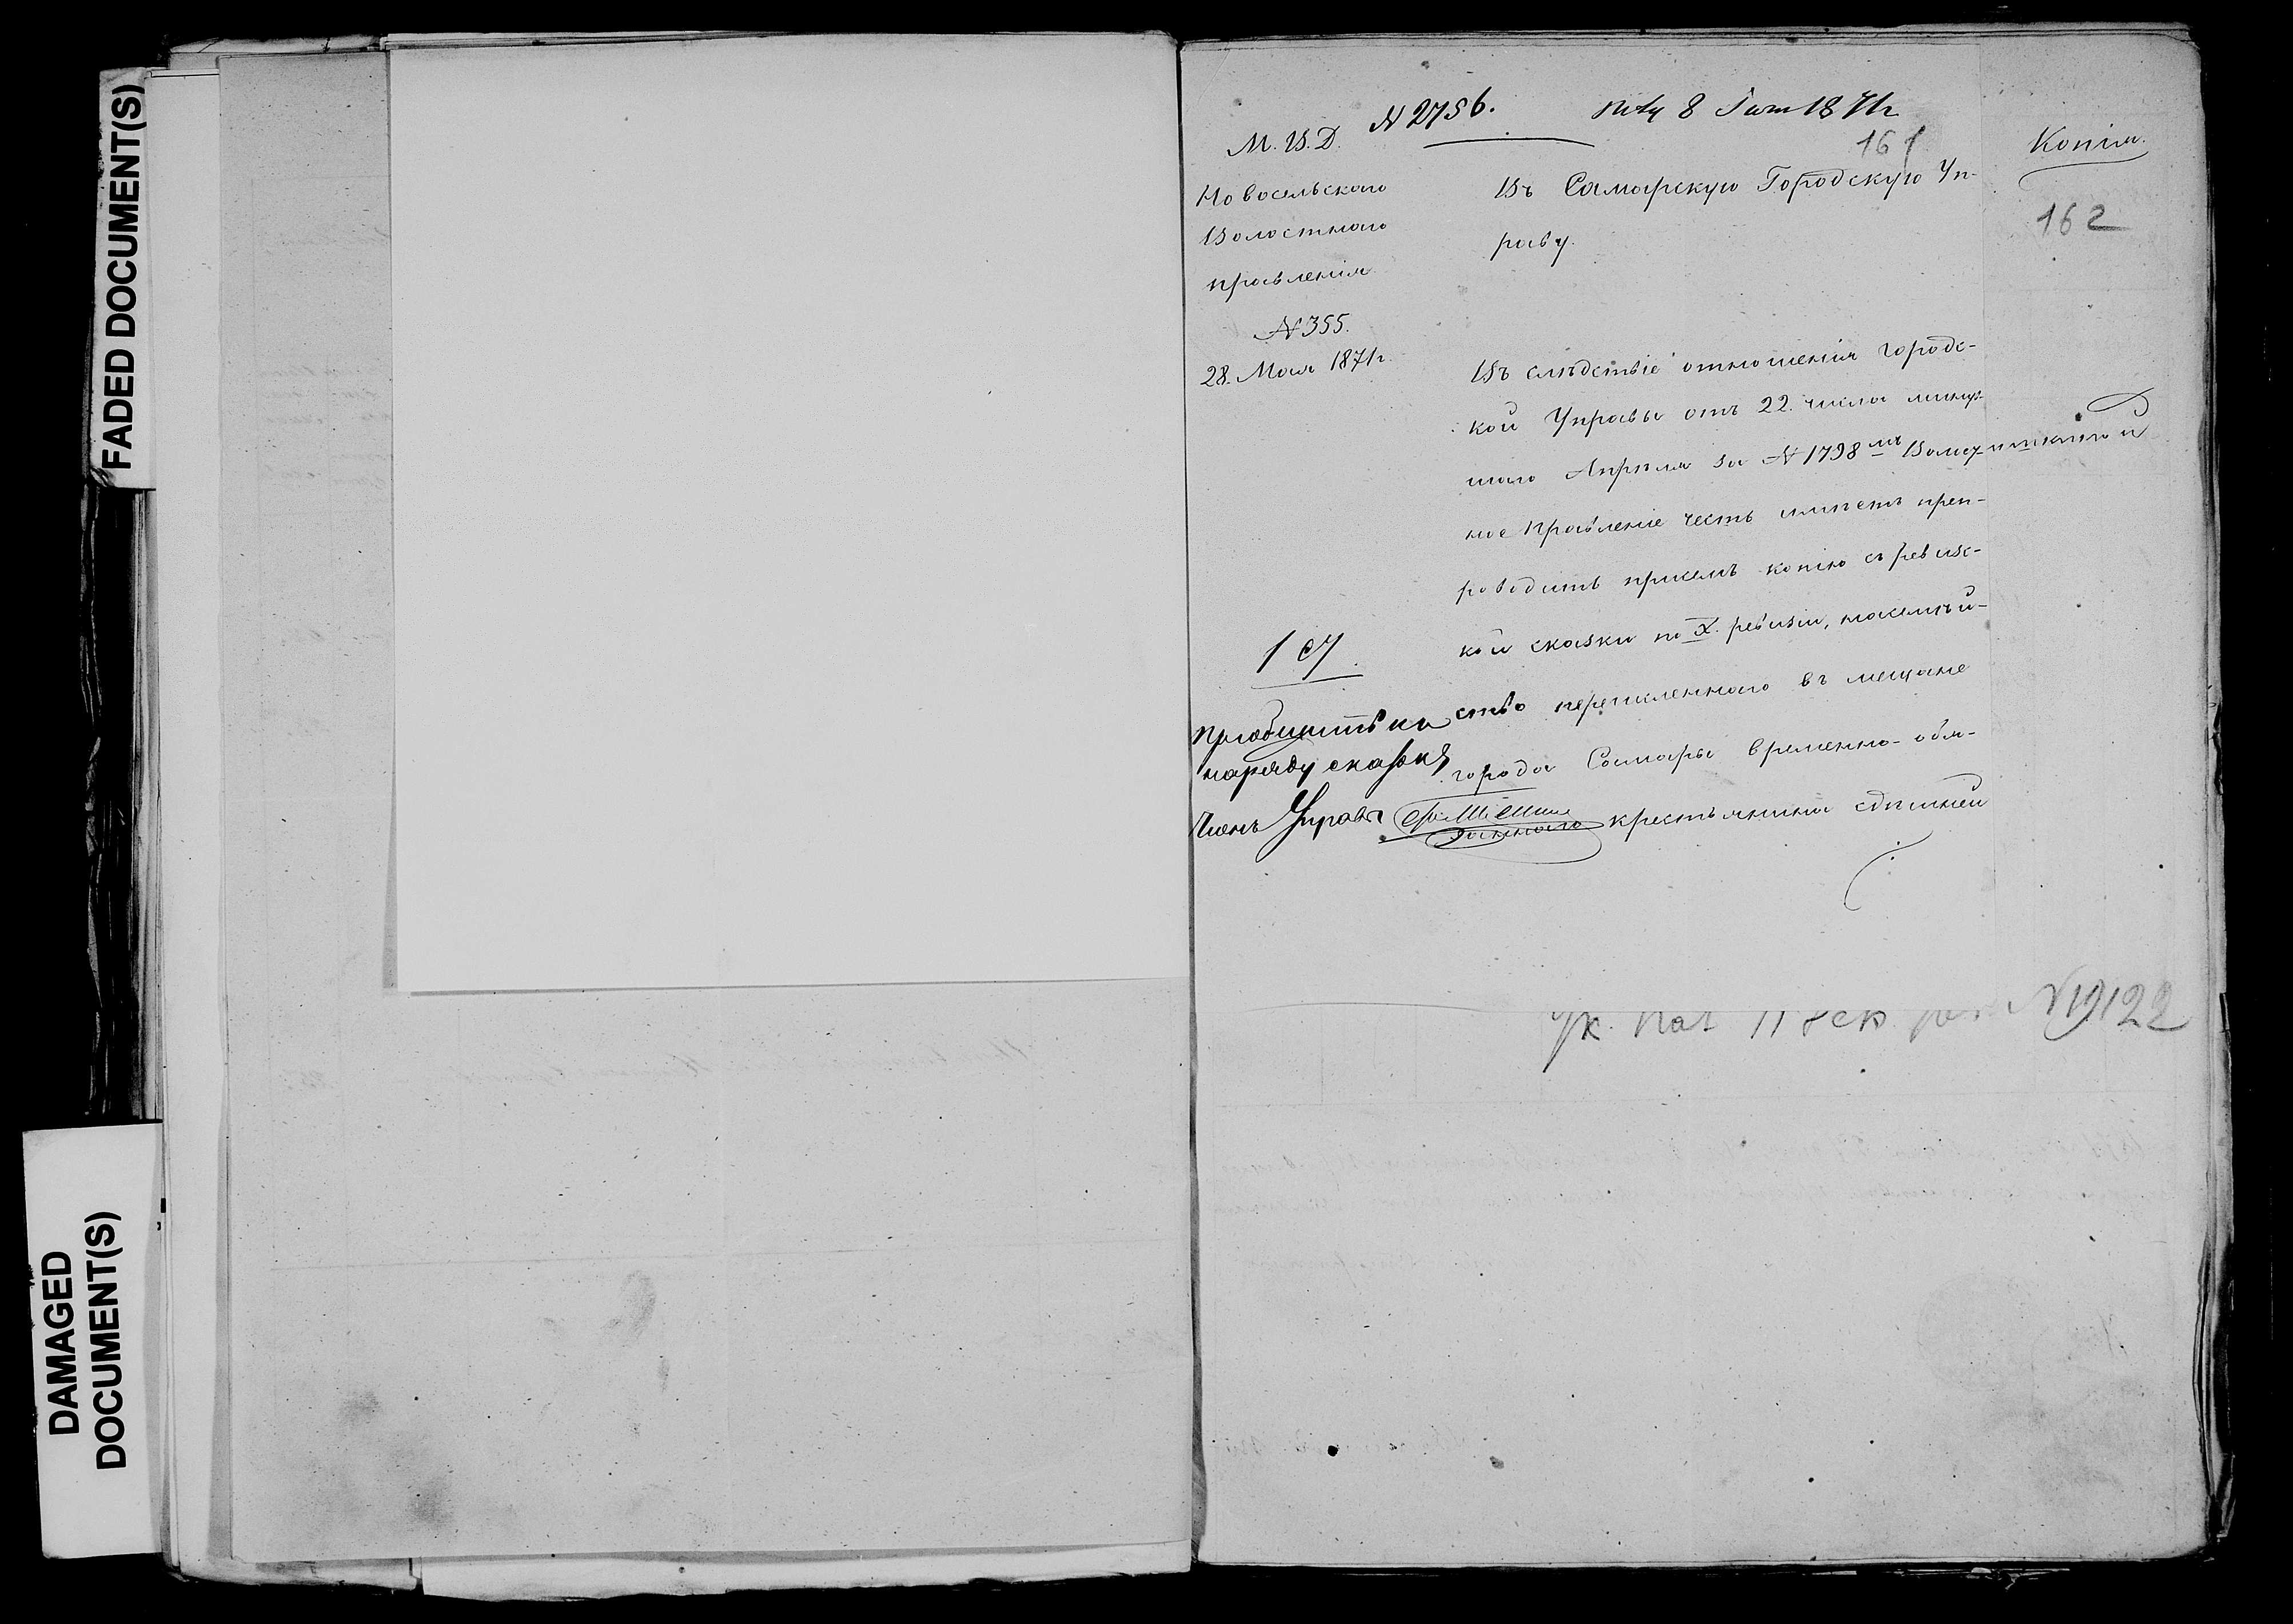 FADED DOCUMENT(S)
DAMAGED
DOCUMENT(S)
N 2756.
8 Іюня 1871 г
М. В. Д.
161
Копія.
Новосельскаго
Волостнаго
правленія
N 355.
28. Мая 1871 г.
162
Въ Самарскую Городскую Уп-
раву.
Въ слѣдствіе отношенія городс-
кой Управы от 22. числа минув-
шаго Апрѣля за N 1798мъ Волост-
ное Правленіе честь имѣетъ преп-
роводить присемъ копію съ ревизс-
кой сказки по X. ревизіи, насемѣй-
ство перечисленнаго въ мещане
города Самары временно-обя-
заннаго крестьянина здѣшней
1 ст
Пріобщить къ
наряду сказки
Членъ Управы
Ук. Каз П N 19122